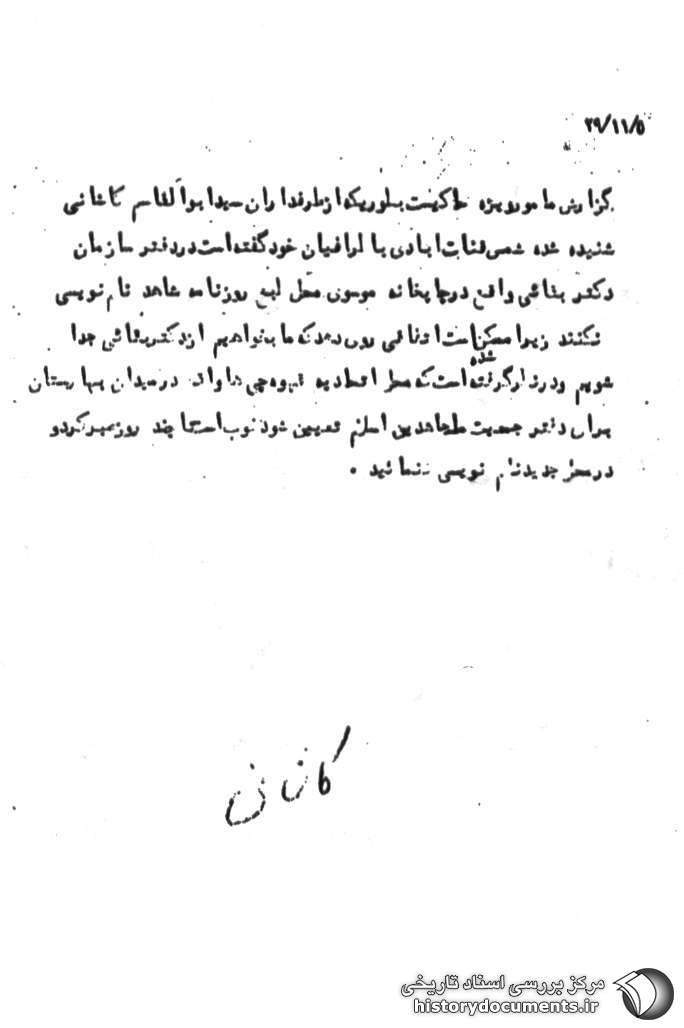 ۲۹/۱۱/۵
گزارش مامور ویژه حاکیست بطوریکه از طرفداران سید ابوالقاسم کاشانی
شنیده شده شمس قنات ابادی با طرافیان خود گفته است در دفتر سازمان
دکتر بقائی واقع در چاپخانه موسوی محل طبع روزنامه شاهد نام نویسی
نکنند زیرا ممکن است اتفاقی روی دهد که ما بخواهیم از دکتر بقائی جدا
شویم و در نظر گرفته شده است که محل اتحادیه قهوه چی ها واقع در میدان بهارستان
برای دفتر جمعیت مجاهدین اسلام تعیین شود خوب است تا چند روز صبر کرد و
در محل جدید نام نویسی نمائید .
کاشانی
مرکز بررسی اسناد تاریخی
historydocuments.ir